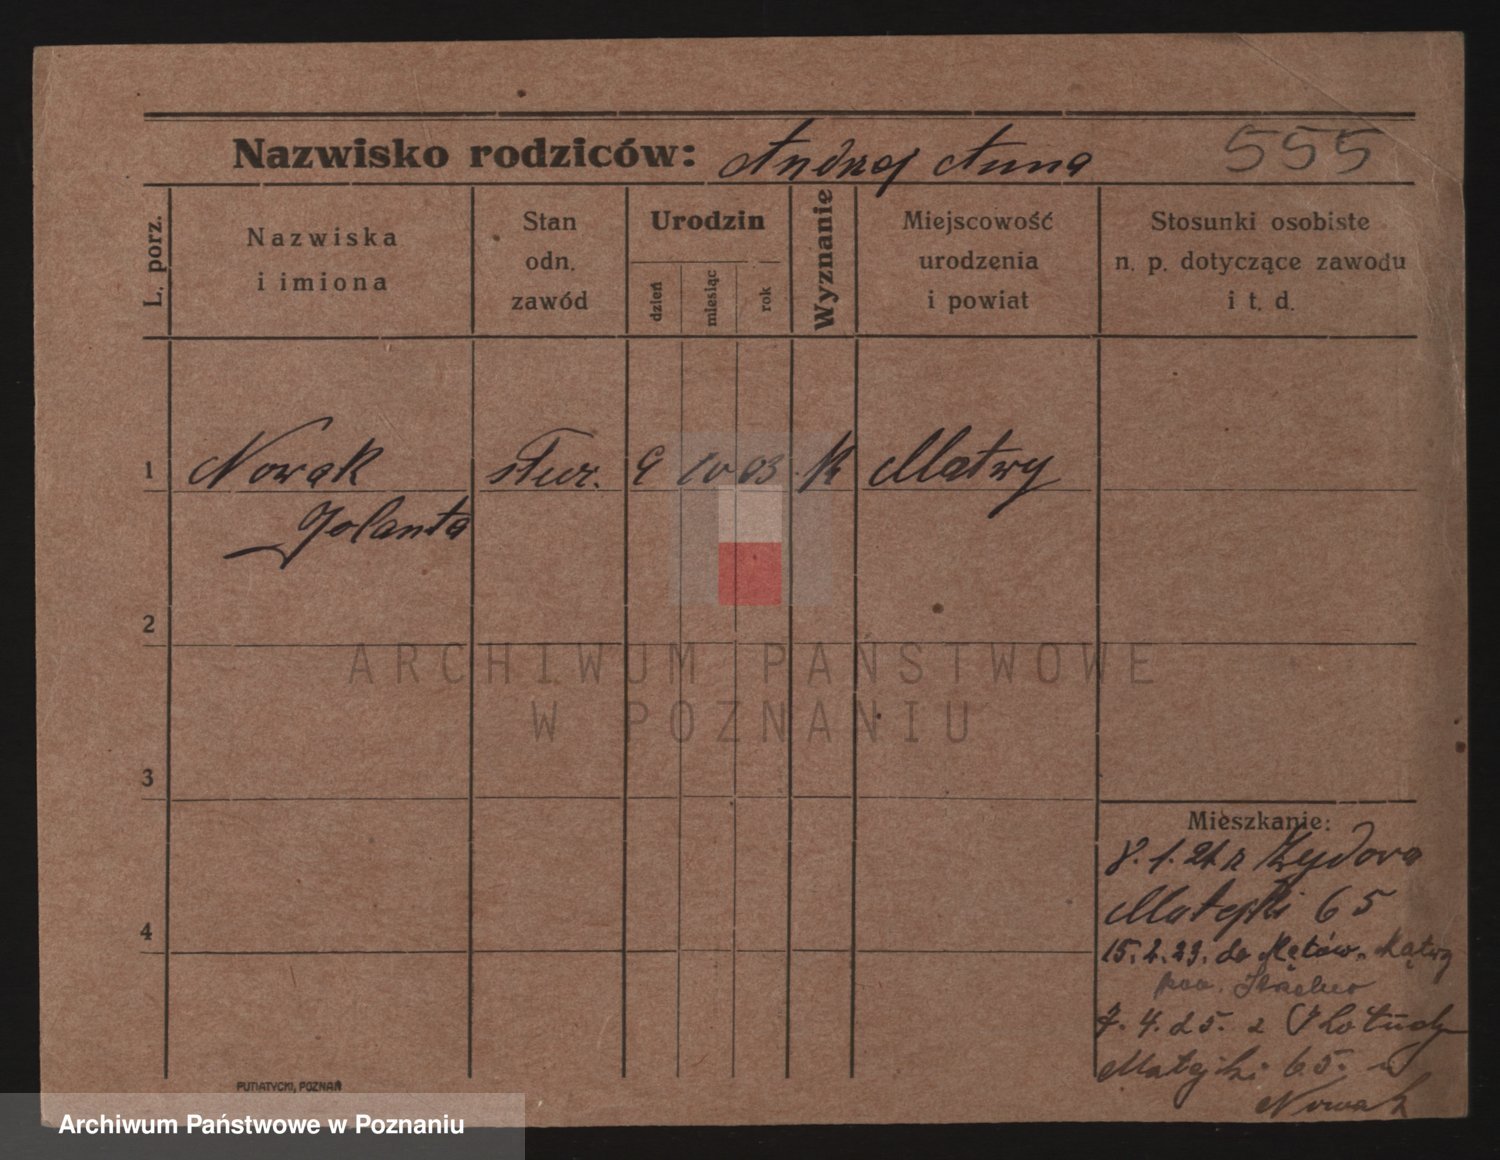 Nazwisko rodziców: Andrzej Anna 555
L. porz.
Nazwiska
i imiona
Stan
odn.
zawód
Urodzin
dzień
miesiąc
rok
Wyznanie
Miejscowość
urodzenia
i powiat
Stosunki osobiste
n. p. dotyczące zawodu
i t. d.
1 Nowak 9 10 03 Matwy
Jolanta
2
ARCHIWUM PAŃSTWOWE
W POZNANIU
3
Mieszkanie:
8. 1. 21 z
Matejki 65
4
15. 2. 23. do
7. 4. 25. z
Matejki 65. u
Nowak
PUTIATYCKI, POZNAŃ
Archiwum Państwowe w Poznaniu